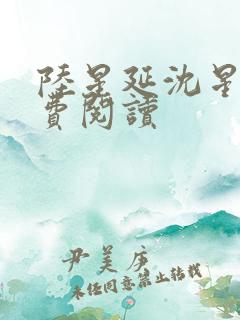 陸星延沈星
費閱讀
尹美庄
未经同意禁止转载